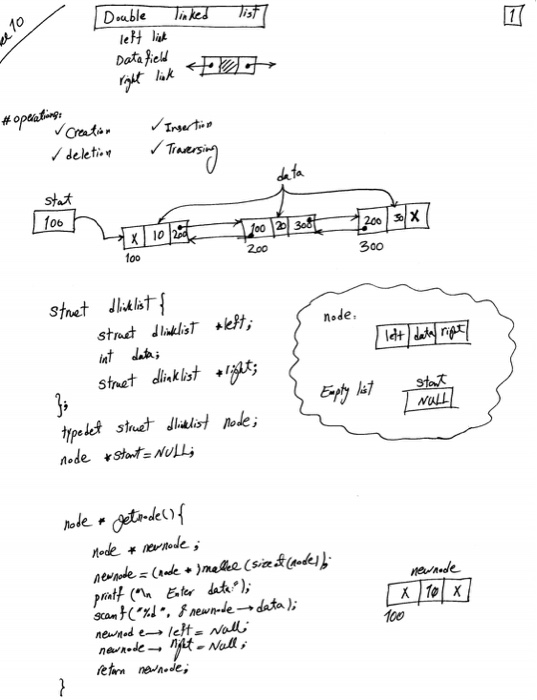 10
1
Double linked list
left link
Data field
right link
# operations:
✓ Creation ✓ Insertion
✓ deletion ✓ Traversing
data
stat
100
X 10 200
100
100 20 300
200
200 30 X
300
struct dlinklist {
struct dlinklist *left;
int data;
struct dlinklist *right;
};
typedef struct dlinklist node;
node *start=NULL;
node:
left data right
Empty list
start
NULL
node * getnode() {
node * newnode;
newnode = (node *) malloc (sizeof(node));
printf ("\n Enter data:");
scanf ("%d", &newnode → data);
newnode → left = Null;
newnode → right = Null;
return newnode;
}
newnode
X 10 X
100